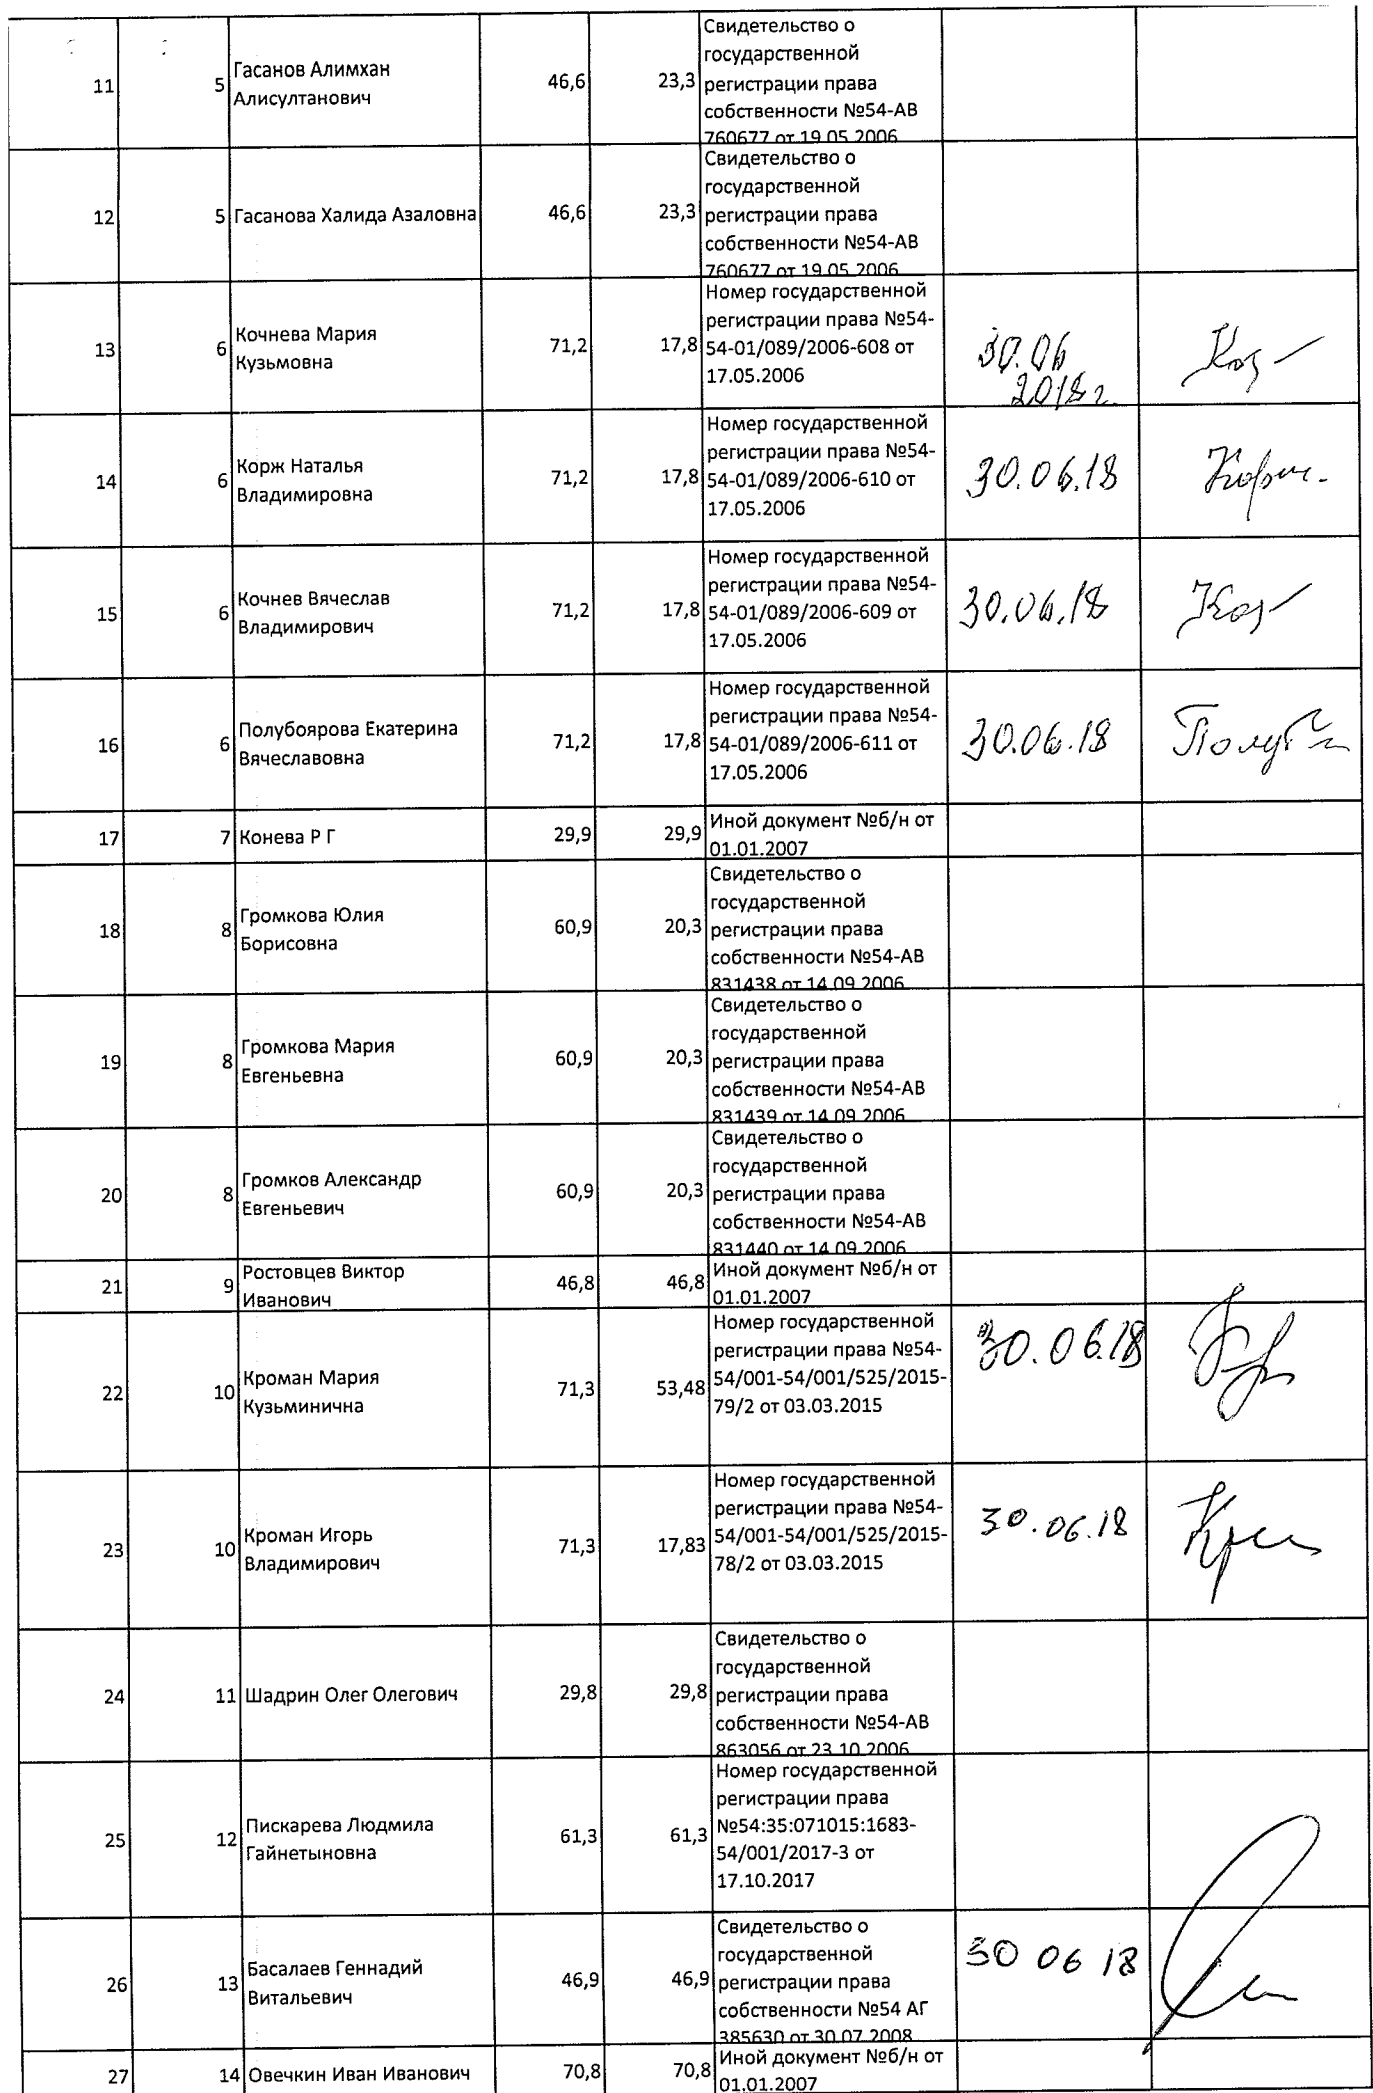 11 5 Гасанов Алимхан Алисултанович 46,6 23,3 Свидетельство о
государственной
регистрации права
собственности №54-АВ
760677 от 19.05.2006
12 5 Гасанова Халида Азаловна 46,6 23,3 Свидетельство о
государственной
регистрации права
собственности №54-АВ
760677 от 19.05.2006
13 6 Кочнева Мария Кузьмовна 71,2 17,8 Номер государственной
регистрации права №54-
54-01/089/2006-608 от
17.05.2006
30.06
2018г.
14 6 Корж Наталья Владимировна 71,2 17,8 Номер государственной
регистрации права №54-
54-01/089/2006-610 от
17.05.2006
30.06.18
15 6 Кочнев Вячеслав Владимирович 71,2 17,8 Номер государственной
регистрации права №54-
54-01/089/2006-609 от
17.05.2006
30.06.18
16 6 Полубоярова Екатерина Вячеславовна 71,2 17,8 Номер государственной
регистрации права №54-
54-01/089/2006-611 от
17.05.2006
30.06.18
17 7 Конева Р Г 29,9 29,9 Иной документ №б/н от
01.01.2007
18 8 Громкова Юлия Борисовна 60,9 20,3 Свидетельство о
государственной
регистрации права
собственности №54-АВ
831438 от 14.09.2006
19 8 Громкова Мария Евгеньевна 60,9 20,3 Свидетельство о
государственной
регистрации права
собственности №54-АВ
831439 от 14.09.2006
20 8 Громков Александр Евгеньевич 60,9 20,3 Свидетельство о
государственной
регистрации права
собственности №54-АВ
831440 от 14.09.2006
21 9 Ростовцев Виктор Иванович 46,8 46,8 Иной документ №б/н от
01.01.2007
22 10 Кроман Мария Кузьминична 71,3 53,48 Номер государственной
регистрации права №54-
54/001-54/001/525/2015-
79/2 от 03.03.2015
30.06.18
23 10 Кроман Игорь Владимирович 71,3 17,83 Номер государственной
регистрации права №54-
54/001-54/001/525/2015-
78/2 от 03.03.2015
30.06.18
24 11 Шадрин Олег Олегович 29,8 29,8 Свидетельство о
государственной
регистрации права
собственности №54-АВ
863056 от 23.10.2006
25 12 Пискарева Людмила Гайнетыновна 61,3 61,3 Номер государственной
регистрации права
№54:35:071015:1683-
54/001/2017-3 от
17.10.2017
26 13 Басалаев Геннадий Витальевич 46,9 46,9 Свидетельство о
государственной
регистрации права
собственности №54 АГ
385630 от 30.07.2008
30 06 18
27 14 Овечкин Иван Иванович 70,8 70,8 Иной документ №б/н от
01.01.2007